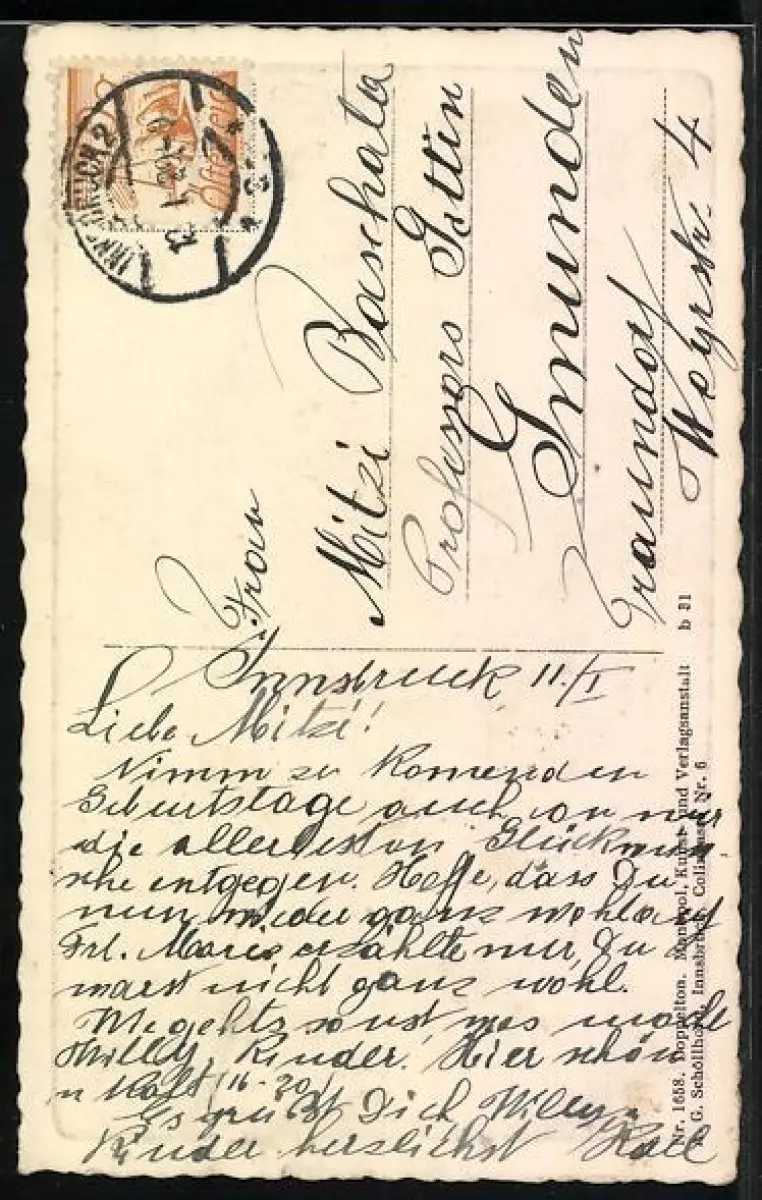 INNSBRUCK 2
Österreich
Frau
Mitzi Baschata
Professors Gattin
Gmunden
Traundorf
Weyrstr. 4
Innsbruck 11./I
Liebe Mitzi!
Nimm zu komenden
Geburtstage auch von mir
die allerbesten Glückwün-
sche entgegen. Hoffe, dass Du
nun wieder ganz wohlauf
Frl. Marie erzählte mir, Du
warst nicht ganz wohl.
Wie gehts sonst was macht
Willy, Kinder. Hier schön
u kalt (16-20)
Es grüßt Dich Willy u
Kinder herzlichst
Nr. 1658. Doppelton. Monopol, Kunst- und Verlagsanstalt b 31
G. Schöllhorn, Innsbruck, Colingasse Nr. 6